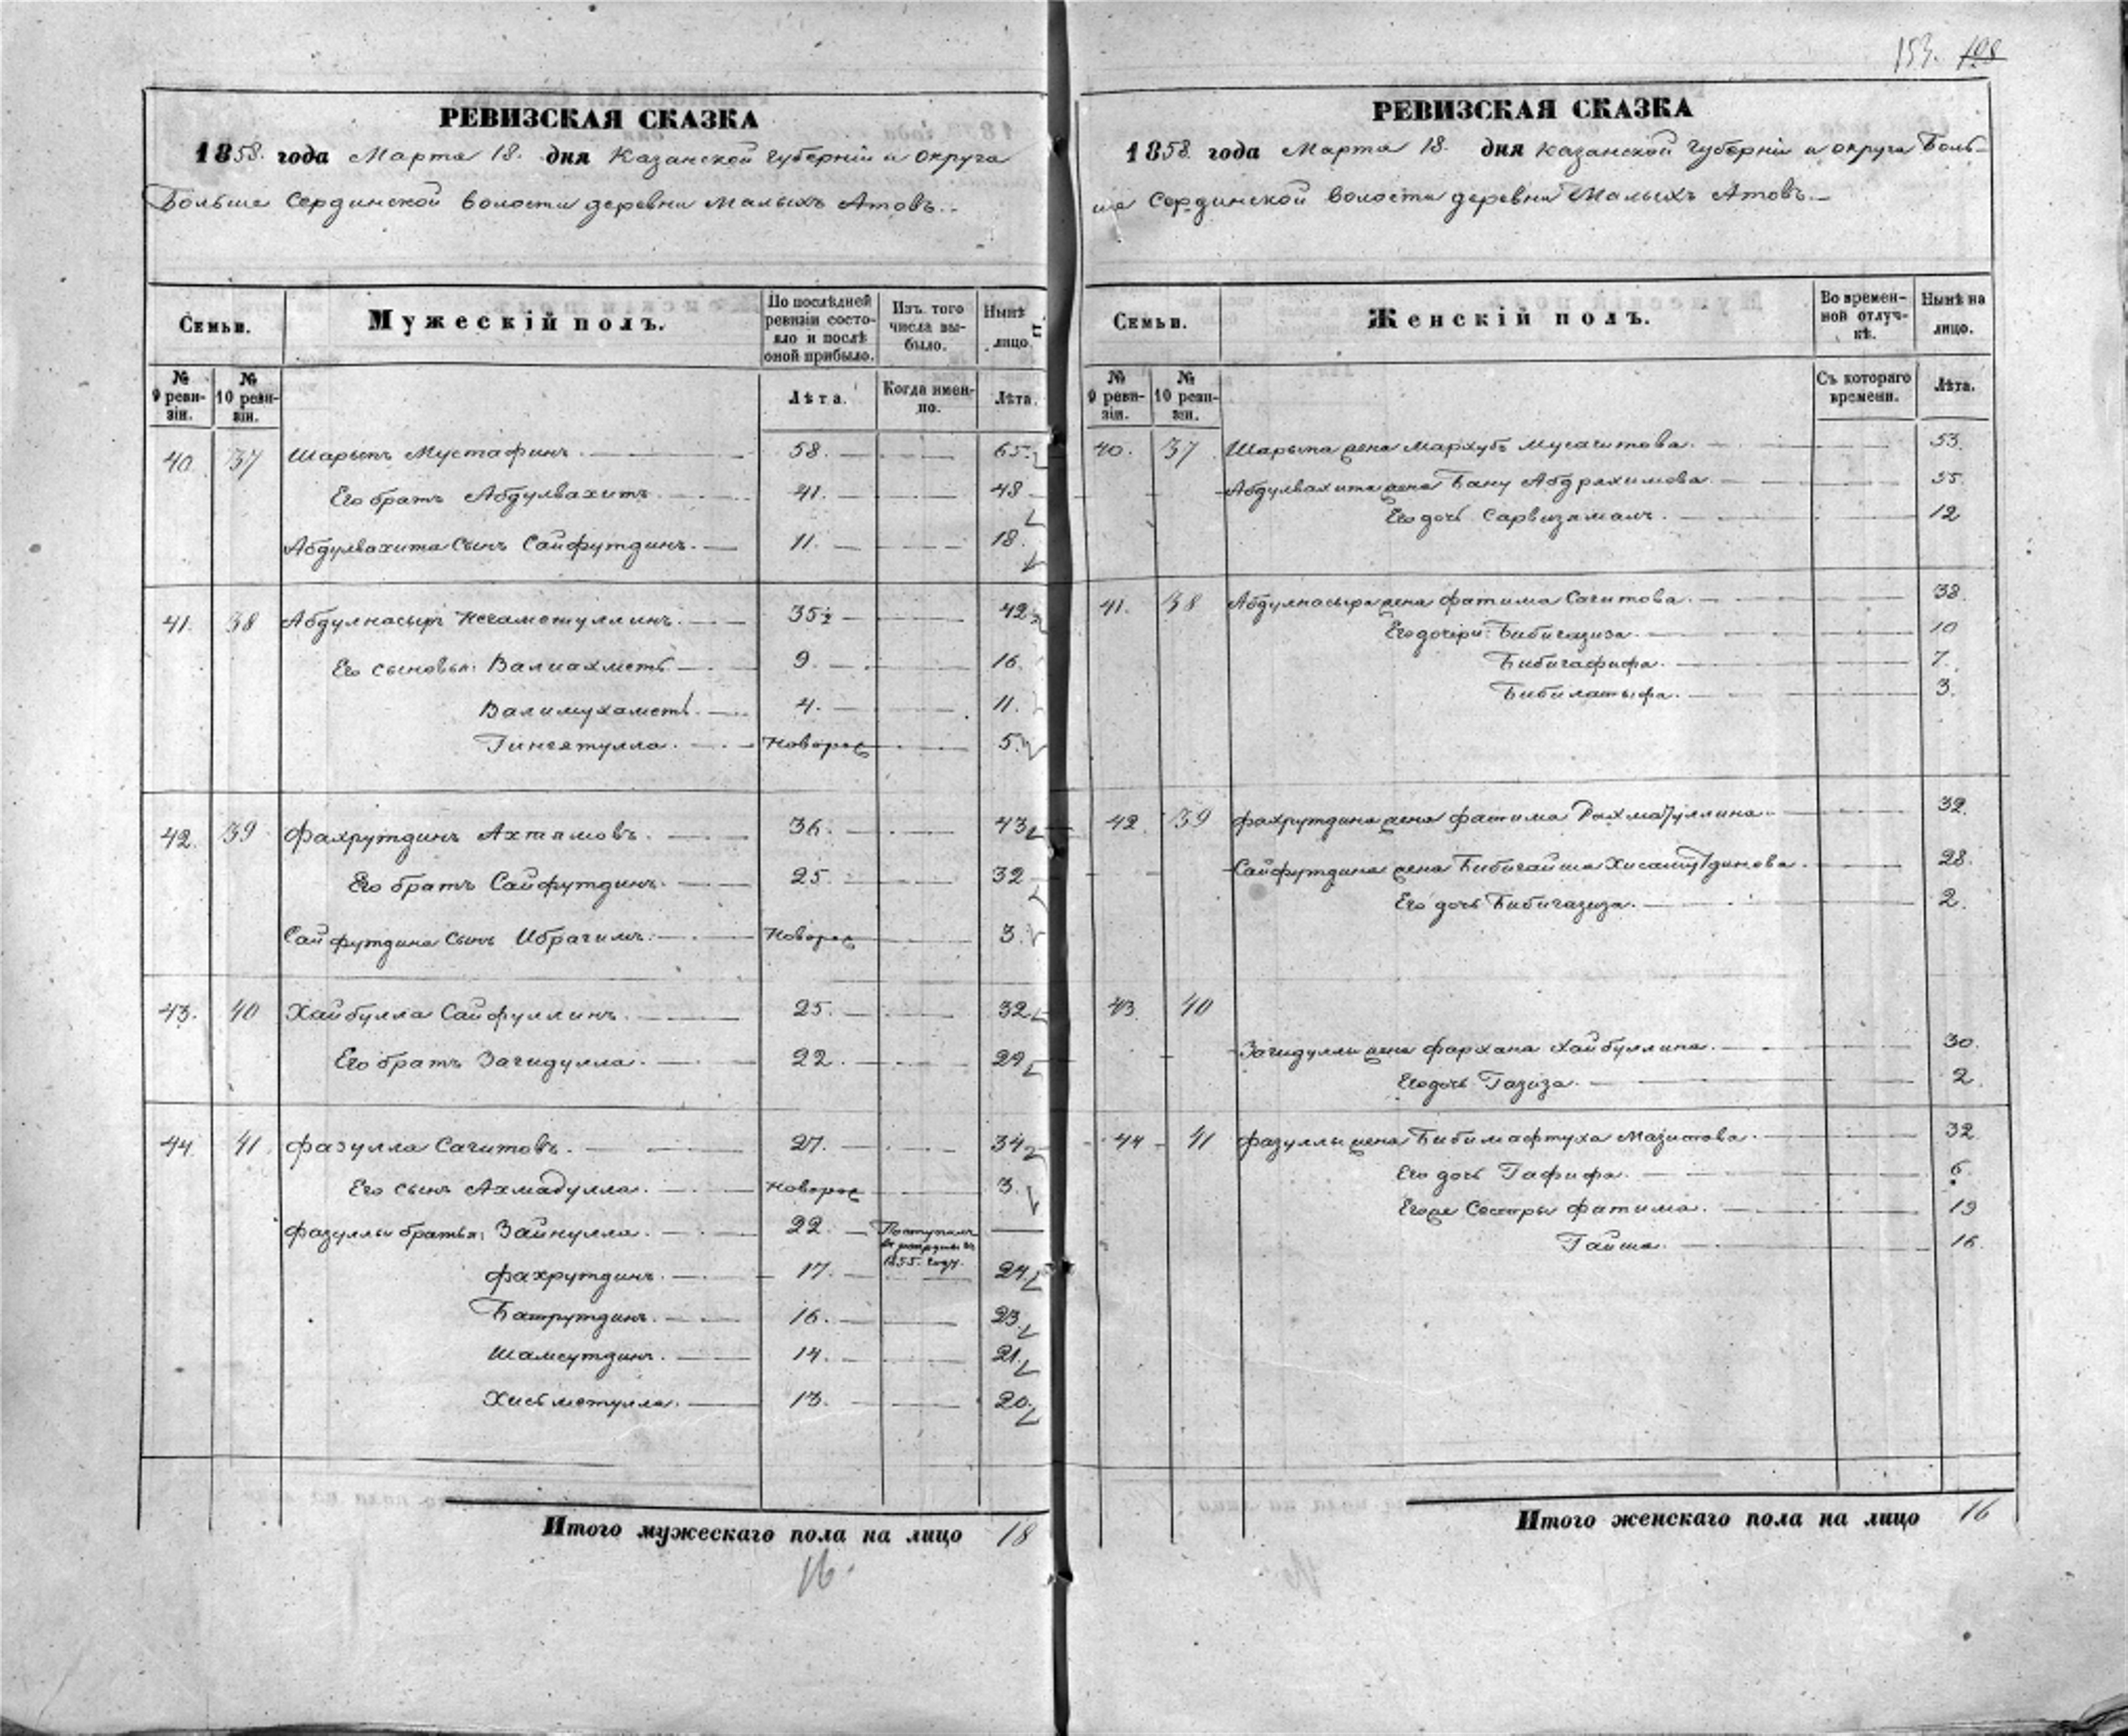 153. 128
РЕВИЗСКАЯ СКАЗКА
1858. года Марта 18. дня Казанской Губерніи и округа
Больше Сердинской волости деревни Малыхъ Атовъ.
Семьи.
Мужескій полъ.
По послѣдней ревизіи состояло и послѣ оной прибыло.
Изъ того числа выбыло.
Нынѣ лицо.
№ 9 ревизіи.
№ 10 ревизіи.
Лѣта.
Когда именно.
Лѣта.
40. 37 Шарыпъ Мустафинъ. 58. 65.
Его братъ Абдулвахитъ. 41. 48
Абдулвахита Сынъ Сайфутдинъ. 11. 18.
41. 38 Абдулнасыръ Негаметуллинъ. 35½ 42½
Его сыновья: Валиахметъ 9. 16.
Валимухаметъ. 4. 11.
Гинеятулла. Новорос 5.
42. 39 Фахрутдинъ Ахтямовъ. 36. 43
Его братъ Сайфутдинъ. 25. 32
Сайфутдина Сынъ Ибрагимъ. Новорос 3.
43. 40 Хайбулла Сайфуллинъ. 25. 32
Его братъ Загидулла. 22. 29
44. 41. Фазулла Сагитовъ. 27. 34
Его сынъ Ахмадулла. Новорос 3.
Фазуллы братья: Зайнулла. 22. Поступилъ въ рекруты въ 1855. году.
Фахрутдинъ. 17. 24
Батрутдинъ. 16. 23.
Шамсутдинъ. 14. 21.
Хисьметулла. 13. 20.
Итого мужескаго пола на лицо 18
16.
РЕВИЗСКАЯ СКАЗКА
1858. года Марта 18. дня Казанской Губерніи и округа Боль-
ше Сердинской волости деревни Малыхъ Атовъ.
Семьи.
Женскій полъ.
Во временной отлучкѣ.
Нынѣ на лицо.
№ 9 ревизіи.
№ 10 ревизіи.
Съ котораго времени.
Лѣта.
40. 37 Шарыпа жена Мархубъ Мусагитова. 53.
Абдулвахита жена Бану Абдрахимова. 55.
Его дочь Сарвизямалъ. 12
41. 38 Абдулнасыра жена Фатима Сагитова. 38.
Его дочери: Бибигазиза. 10
Бибигафифа. 7.
Бибилатыфа. 3.
42. 39 Фахрутдина жена Фатима Рахматуллина. 32.
Сайфутдина жена Бибигайша Хисамутдинова. 28.
Его дочь Бибигазиза. 2.
43. 40
Загидуллы жена Фархана Хайбуллина. 30.
Его дочь Газиза. 2.
44 41 Фазуллы жена Бибимафтуха Мазитова. 32.
Его дочь Гафифа. 6.
Его же Сестры Фатима. 19
Гайша. 16.
Итого женскаго пола на лицо 16